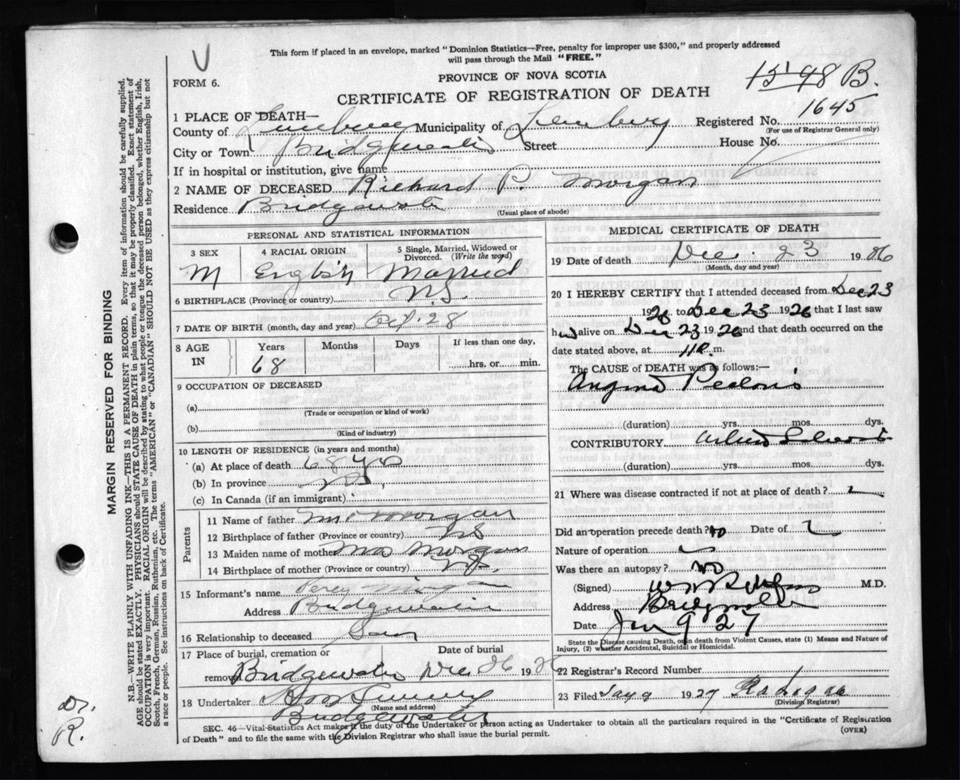 V
This form if placed in an envelope, marked "Dominion Statistics—Free, penalty for improper use $300," and properly addressed
will pass through the Mail "FREE."
FORM 6.
PROVINCE OF NOVA SCOTIA
15 48 B.
CERTIFICATE OF REGISTRATION OF DEATH
1645
1 PLACE OF DEATH—
County of Lunenburg Municipality of Lunenburg Registered No.
(For use of Registrar General only)
City or Town Bridgewater Street House No.
If in hospital or institution, give name
2 NAME OF DECEASED Richard P. Morgan
Residence Bridgewater
(Usual place of abode)
PERSONAL AND STATISTICAL INFORMATION
3 SEX 4 RACIAL ORIGIN 5 Single, Married, Widowed or Divorced. (Write the word)
M English Married
6 BIRTHPLACE (Province or country) N.S.
7 DATE OF BIRTH (month, day and year) 28
8 AGE IN Years Months Days If less than one day,
68 hrs. or min.
9 OCCUPATION OF DECEASED
(a)
(Trade or occupation or kind of work)
(b)
(Kind of industry)
10 LENGTH OF RESIDENCE (in years and months)
(a) At place of death 68 yrs
(b) In province
(c) In Canada (if an immigrant)
Parents
11 Name of father Morgan
12 Birthplace of father (Province or country) NS
13 Maiden name of mother Mrs Morgan
14 Birthplace of mother (Province or country) N.S.
15 Informant's name Percy Morgan
Address Bridgewater
16 Relationship to deceased Son
17 Place of burial, cremation or removal Date of burial
Bridgewater Dec 26 1926
18 Undertaker
(Name and address)
Bridgewater
MEDICAL CERTIFICATE OF DEATH
19 Date of death Dec. 23 1926
(Month, day and year)
20 I HEREBY CERTIFY that I attended deceased from Dec 23
1926 to Dec 23 1926 that I last saw
h alive on Dec 23 1926 and that death occurred on the
date stated above, at m.
The CAUSE OF DEATH was as follows:—
Angina Pectoris
(duration) yrs. mos. dys.
CONTRIBUTORY
(duration) yrs. mos. dys.
21 Where was disease contracted if not at place of death?
Did an operation precede death? no Date of
Nature of operation
Was there an autopsy? no
(Signed) M.D.
Address Bridgewater
Date Jan 9 27
State the Disease causing Death, or in death from Violent Causes, state (1) Means and Nature of
Injury, (2) whether Accidental, Suicidal or Homicidal.
22 Registrar's Record Number
23 Filed 9 1927
(Division Registrar)
SEC. 46—Vital Statistics Act makes it the duty of the Undertaker or person acting as Undertaker to obtain all the particulars required in the "Certificate of Registration
of Death" and to file the same with the Division Registrar who shall issue the burial permit.
(OVER)
MARGIN RESERVED FOR BINDING
N.B.—WRITE PLAINLY WITH UNFADING INK—THIS IS A PERMANENT RECORD. Every item of information should be carefully supplied.
AGE should be stated EXACTLY. PHYSICIANS should STATE CAUSE OF DEATH in plain terms, so that it may be properly classified. Exact statement of
OCCUPATION is very important. RACIAL ORIGIN will be described by stating to what people or tongue the deceased person belonged, whether English, Irish,
Scotch, French, German, Russian, Ruthenian, etc. The terms "AMERICAN" or "CANADIAN" SHOULD NOT BE USED as they express citizenship but not
a race or people. See instructions on back of Certificate.
Dr.
R.